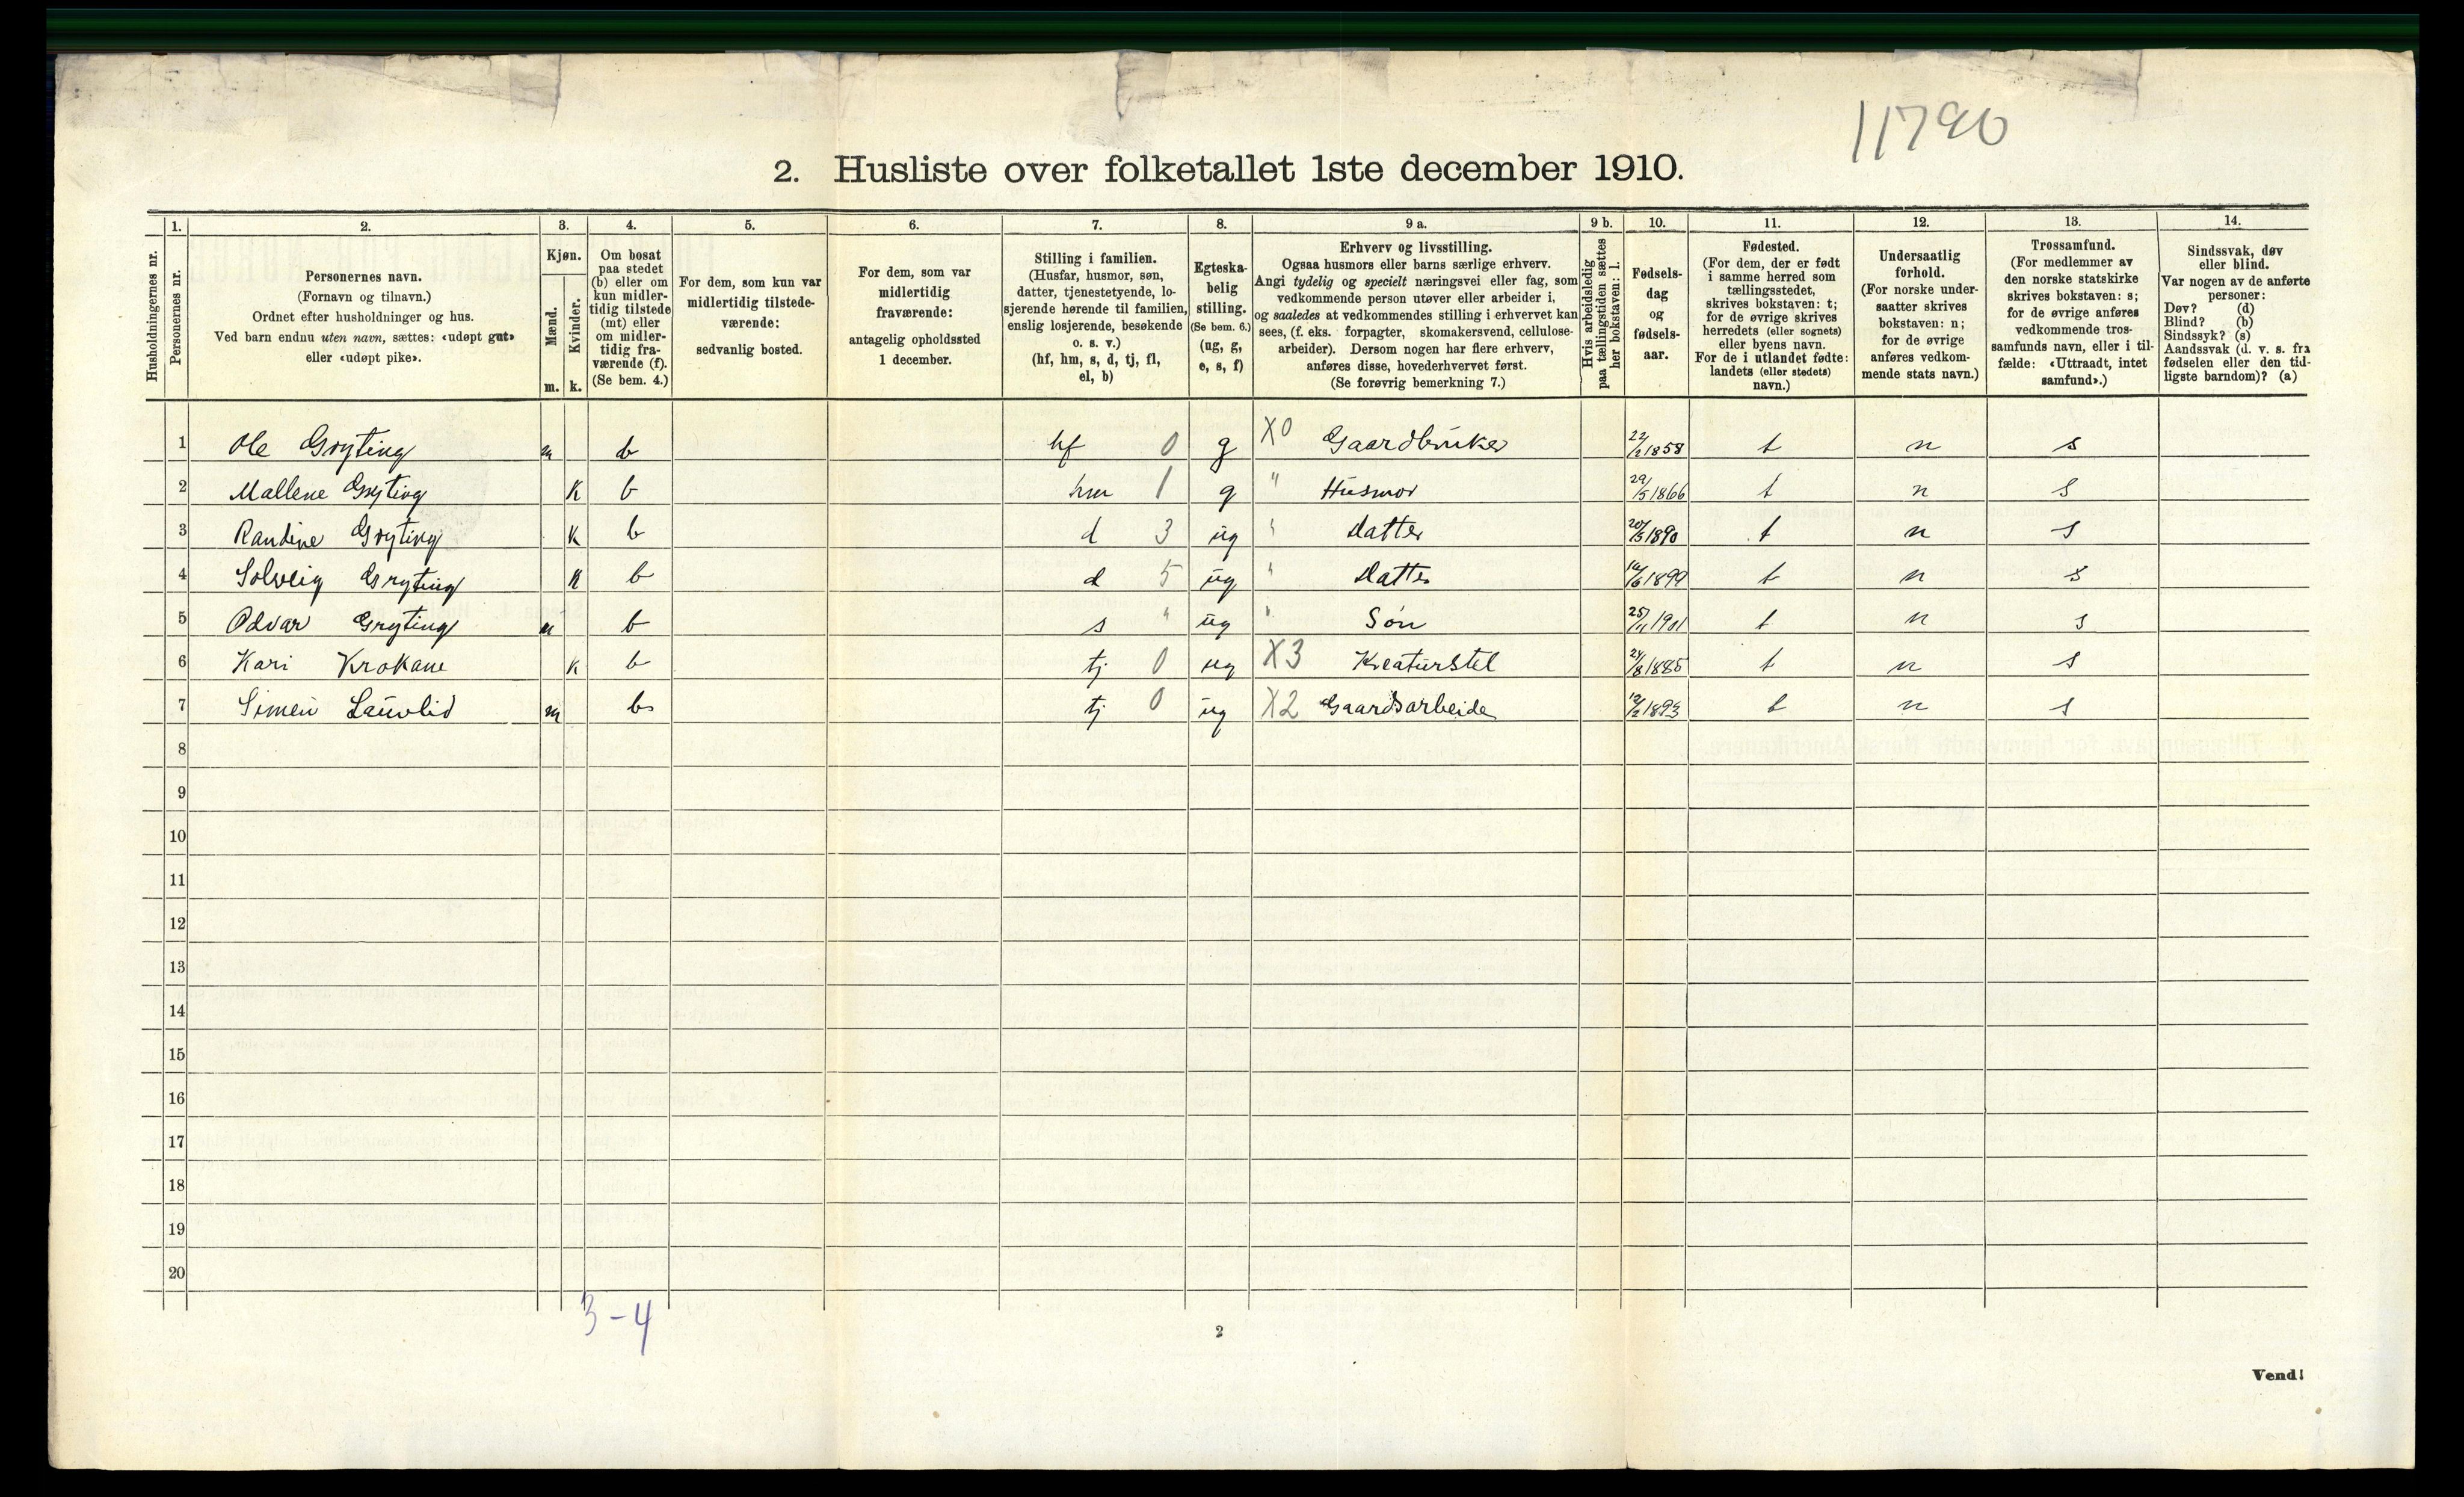 11790
2. Husliste over folketallet 1ste december 1910.
Husholdningernes nr.
1. Personernes nr.
2. Personernes navn. (Fornavn og tilnavn.) Ordnet efter husholdninger og hus. Ved barn endnu uten navn, sættes: «udøpt gut» eller «udøpt pike».
3. Kjøn. Mænd. m. Kvinder. k.
4. Om bosat paa stedet (b) eller om kun midlertidig tilstede (mt) eller om midlertidig fraværende (f). (Se bem. 4.)
5. For dem, som kun var midlertidig tilstedeværende: sedvanlig bosted.
6. For dem, som var midlertidig fraværende: antagelig opholdssted 1 december.
7. Stilling i familien. (Husfar, husmor, søn, datter, tjenestetyende, losjerende hørende til familien, enslig losjerende, besøkende o. s. v.) (hf, hm, s, d, tj, fl, el, b)
8. Egteskabelig stilling. (Se bem. 6.) (ug, g, e, s, f)
9 a. Erhverv og livsstilling. Ogsaa husmors eller barns særlige erhverv. Angi tydelig og specielt næringsvei eller fag, som vedkommende person utøver eller arbeider i, og saaledes at vedkommendes stilling i erhvervet kan sees, (f. eks. forpagter, skomakersvend, cellulosearbeider). Dersom nogen har flere erhverv, anføres disse, hovederhvervet først. (Se forøvrig bemerkning 7.)
9 b. Hvis arbeidsledig paa tællingstiden sættes her bokstaven: l.
10. Fødselsdag og fødselsaar.
11. Fødested. (For dem, der er født i samme herred som tællingsstedet, skrives bokstaven: t; for de øvrige skrives herredets (eller sognets) eller byens navn. For de i utlandet fødte: landets (eller stedets) navn.)
12. Undersaatlig forhold. (For norske undersaatter skrives bokstaven: n; for de øvrige anføres vedkommende stats navn.)
13. Trossamfund. (For medlemmer av den norske statskirke skrives bokstaven: s; for de øvrige anføres vedkommende trossamfunds navn, eller i tilfælde: «Uttraadt, intet samfund».)
14. Sindssvak, døv eller blind. Var nogen av de anførte personer: Døv? (d) Blind? (b) Sindssyk? (s) Aandssvak (d. v. s. fra fødselen eller den tidligste barndom)? (a)
1 Ole Gryting m b hf 0 g X0 Gaardbruker 22/2 1858 t n s
2 Mallene Gryting K b hm 1 g " Husmor 29/5 1866 t n s
3 Randine Gryting K b d 3 ug " Datter 20/5 1890 t n s
4 Solveig Gryting K b d 5 ug " Datter 16/6 1899 t n s
5 Odvar Gryting m b s " ug " Søn 25/11 1901 t n s
6 Kari Krokane K b tj 0 ug X3 Kreaturstel 24/8 1885 t n s
7 Simen Lauvlid m b tj 0 ug X2 Gaardsarbeide 12/2 1893 t n s
8
9
10
11
12
13
14
15
16
17
18
19
20
3-4
2
Vend!